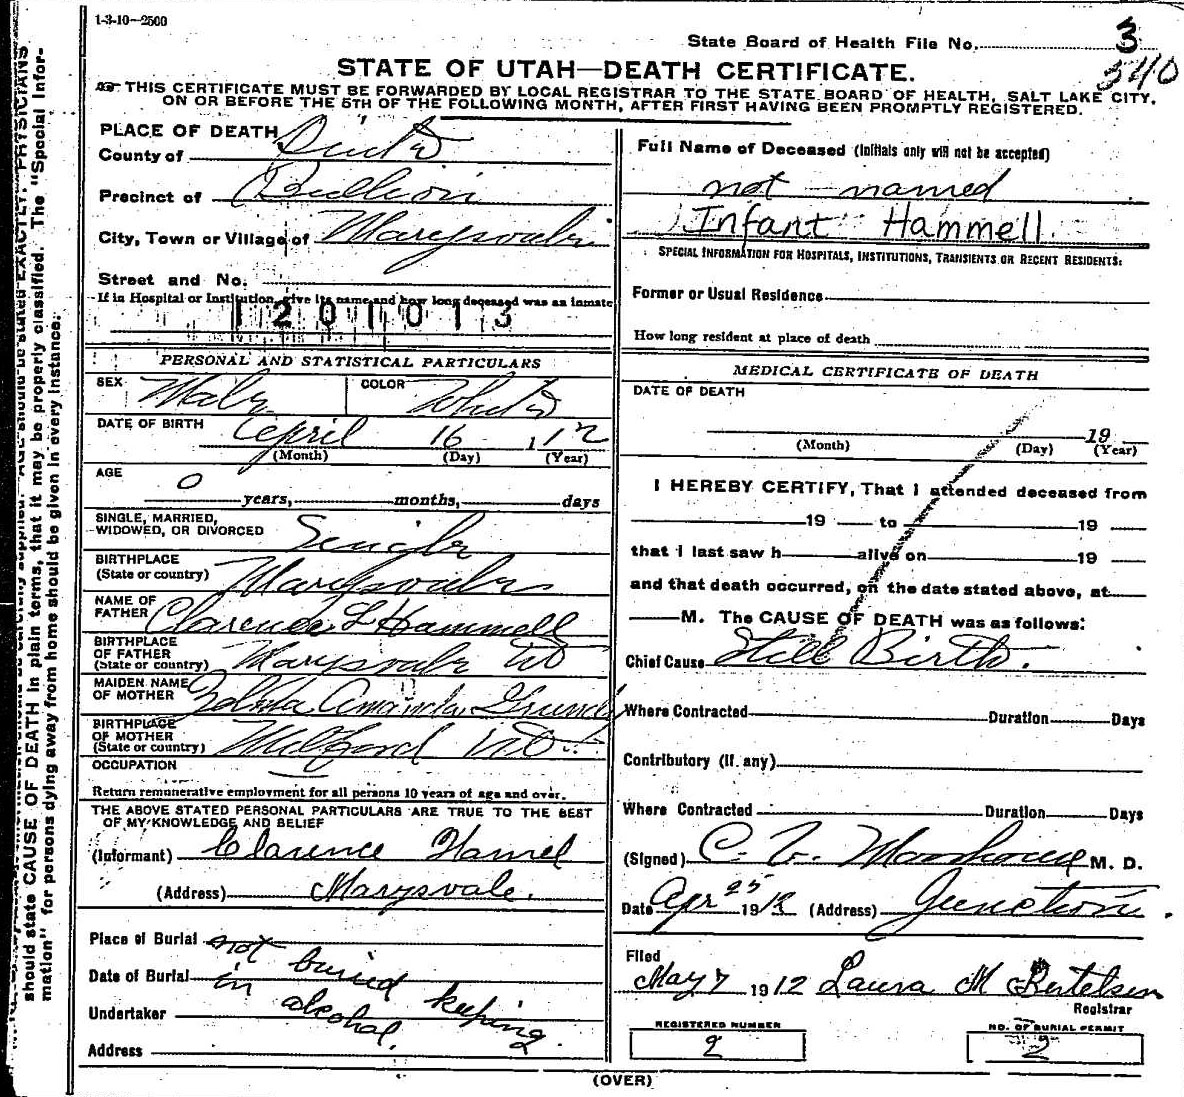 1-3-10—2500
State Board of Health File No. 3
340
STATE OF UTAH—DEATH CERTIFICATE.
THIS CERTIFICATE MUST BE FORWARDED BY LOCAL REGISTRAR TO THE STATE BOARD OF HEALTH, SALT LAKE CITY,
ON OR BEFORE THE 5TH OF THE FOLLOWING MONTH, AFTER FIRST HAVING BEEN PROMPTLY REGISTERED.
PLACE OF DEATH
County of Piute
Precinct of Bullion
City, Town or Village of Marysvale
Street and No.
If in Hospital or Institution, give its name and how long deceased was as inmate
1201013
PERSONAL AND STATISTICAL PARTICULARS
SEX Male COLOR White
DATE OF BIRTH April 16, 12
(Month) (Day) (Year)
AGE
0 years, months, days
SINGLE, MARRIED,
WIDOWED, OR DIVORCED Single
BIRTHPLACE
(State or country) Marysvale
NAME OF
FATHER Clarence L Hammell
BIRTHPLACE
OF FATHER
(State or country) Marysvale Ut
MAIDEN NAME
OF MOTHER Amanda
BIRTHPLACE
OF MOTHER
(State or country) Milford Ut
OCCUPATION
Return remunerative employment for all persons 10 years of age and over.
THE ABOVE STATED PERSONAL PARTICULARS ARE TRUE TO THE BEST
OF MY KNOWLEDGE AND BELIEF
(Informant) Clarence Hamel
(Address) Marysvale.
Place of Burial not buried
Date of Burial in keeping
Undertaker alcohol.
Address
Full Name of Deceased (Initials only will not be accepted)
not named
Infant Hammell.
SPECIAL INFORMATION FOR HOSPITALS, INSTITUTIONS, TRANSIENTS OR RECENT RESIDENTS:
Former or Usual Residence
How long resident at place of death
MEDICAL CERTIFICATE OF DEATH
DATE OF DEATH
19
(Month) (Day) (Year)
I HEREBY CERTIFY, That I attended deceased from
19 to 19
that I last saw h alive on 19
and that death occurred, on the date stated above, at
M. The CAUSE OF DEATH was as follows:
Chief Cause Still Birth.
Where Contracted Duration Days
Contributory (if any)
Where Contracted Duration Days
(Signed) C. M. D.
Date Apr 25 1912 (Address) Junction.
Filed
May 7 1912 Laura M Bertelsen
Registrar
REGISTERED NUMBER
2
NO. OF BURIAL PERMIT
2
(OVER)
should state CAUSE OF DEATH in plain terms, that it may be properly classified. The "Special Infor-
mation" for persons dying away from home should be given in every instance.